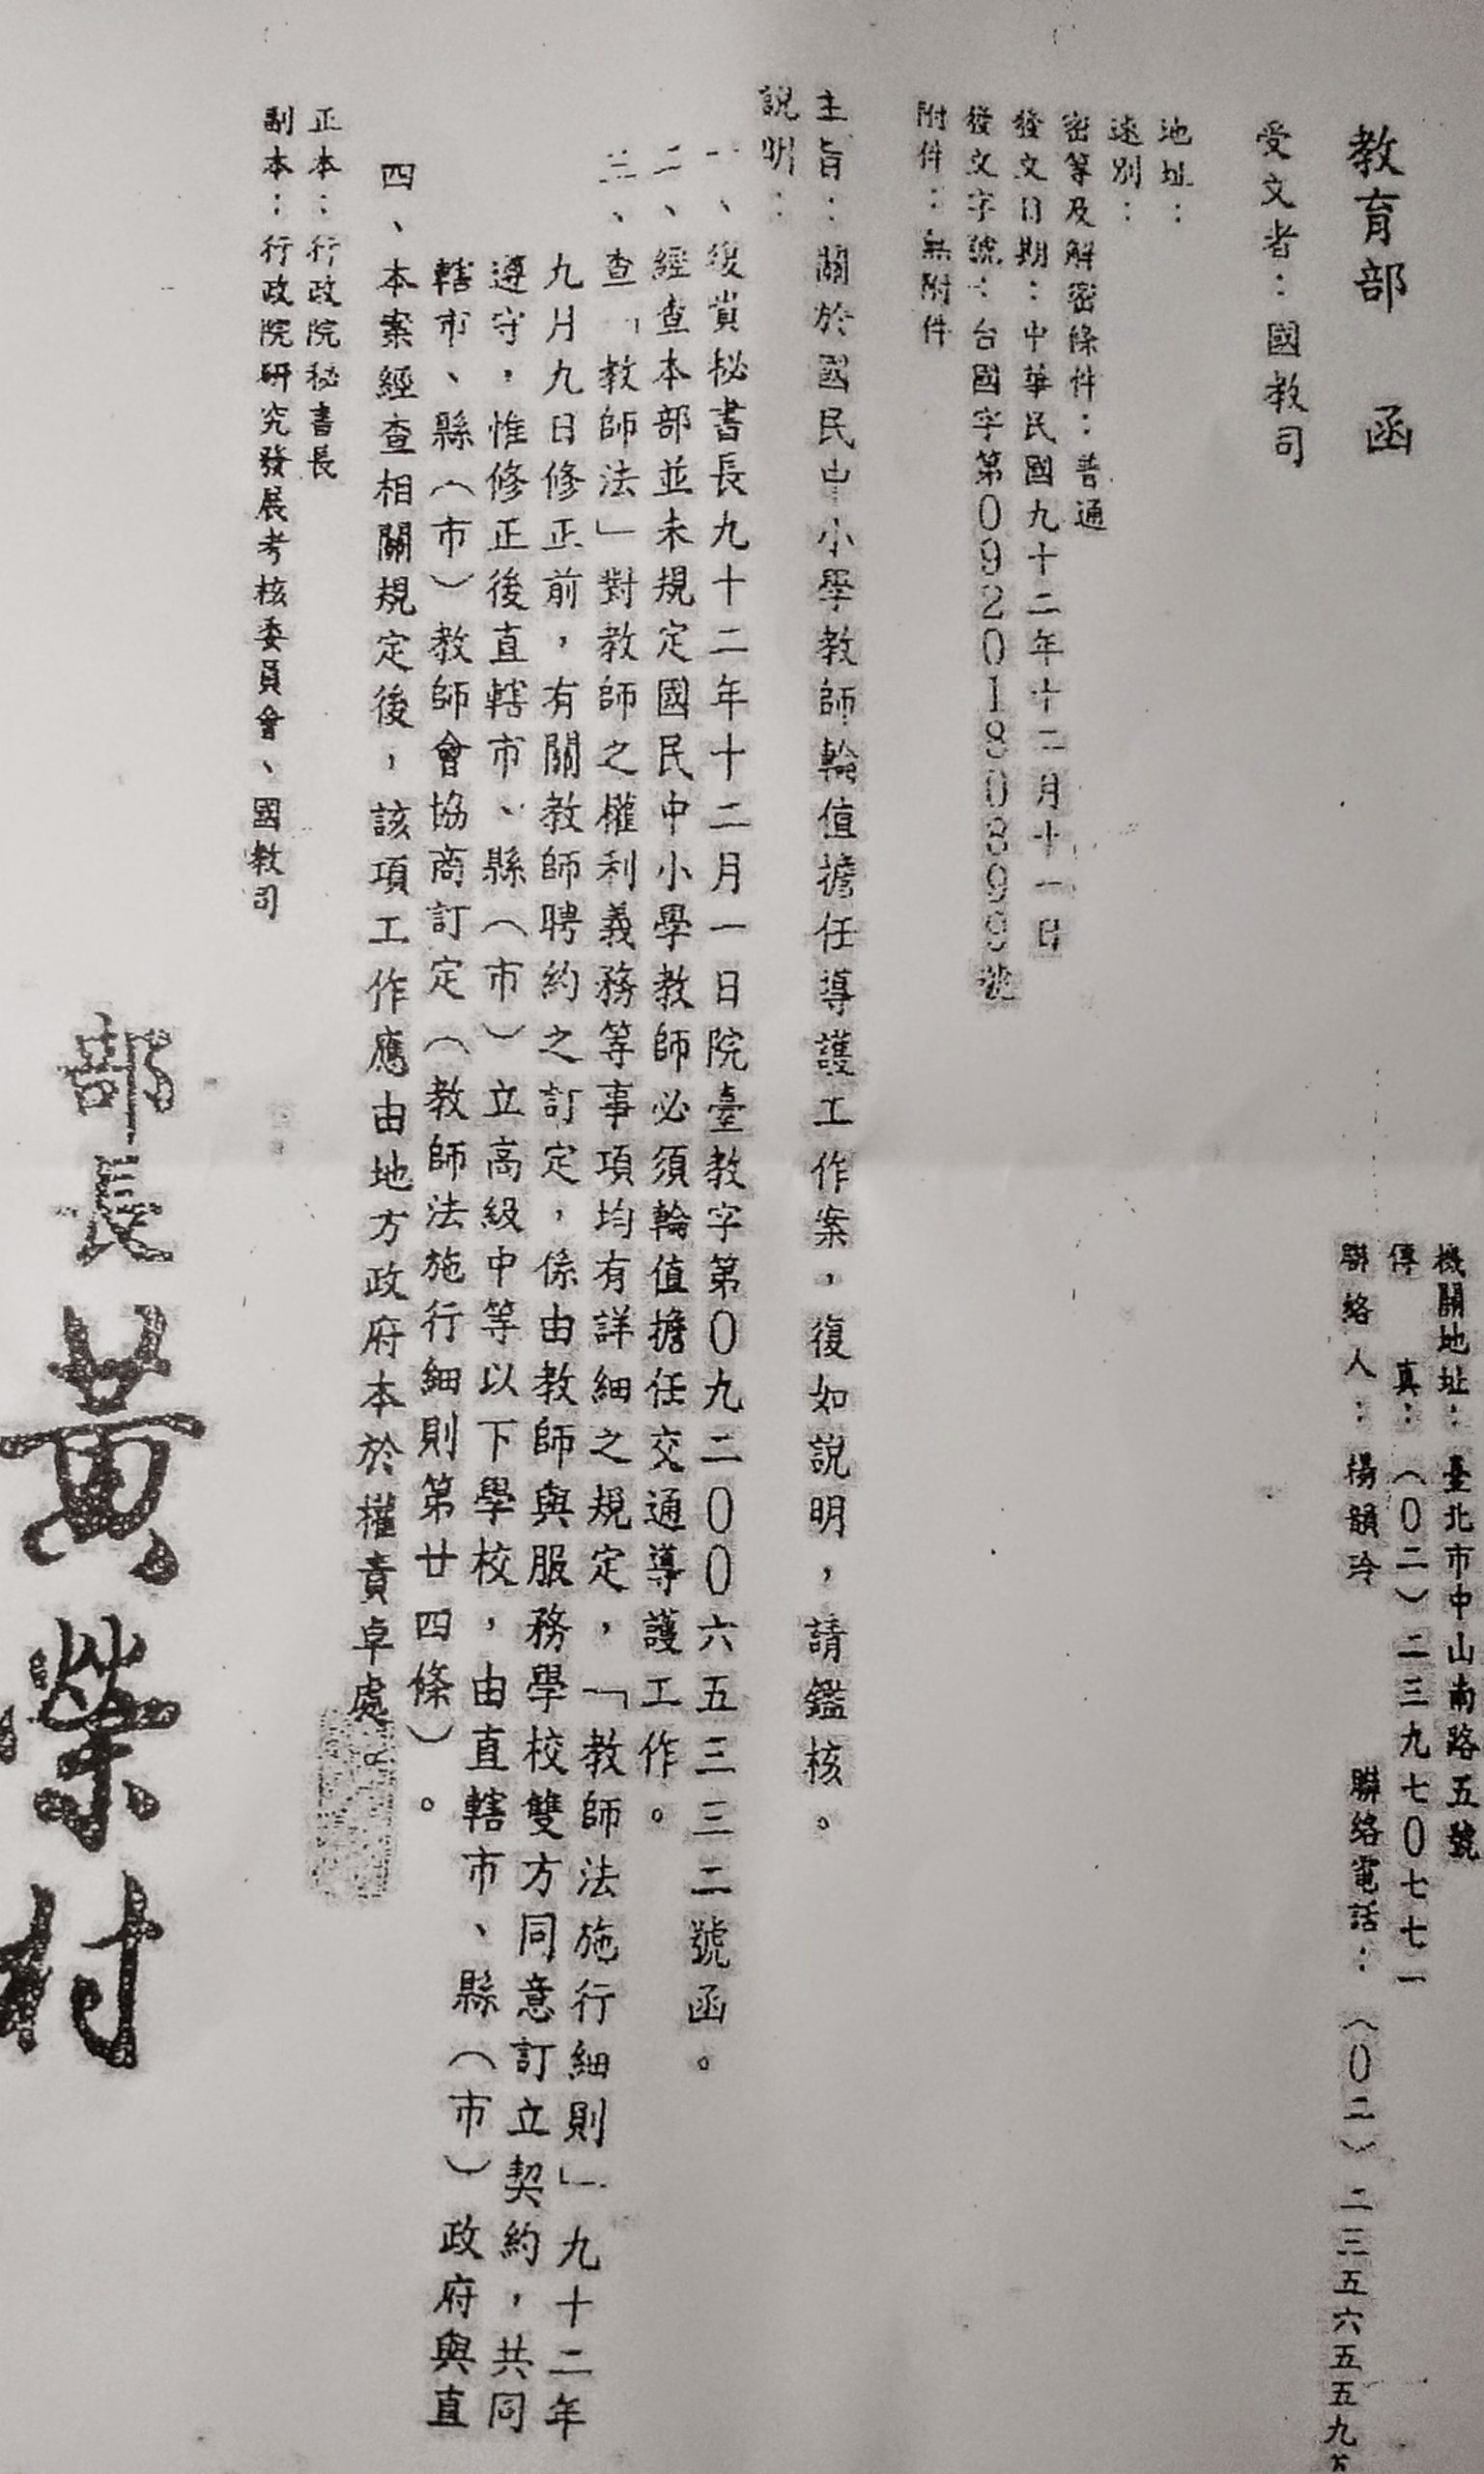 教育部　函
機關地址：臺北市中山南路五號
傳　真：（０二）二三九七０七七一
聯絡人：楊韻泠　　聯絡電話：（０二）二三五六五五九
受文者：國教司
地址：
速別：
密等及解密條件：普通
發文日期：中華民國九十二年十二月十一日
發文字號：台國字第0920180899號
附件：無附件
主旨：關於國民中小學教師輪值擔任導護工作案，復如說明，請鑑核。
說明：
一、復貴秘書長九十二年十二月一日院臺教字第０九二００六五三三二號函。
二、經查本部並未規定國民中小學教師必須輪值擔任交通導護工作。
三、查「教師法」對教師之權利義務等事項均有詳細之規定，「教師法施行細則」九十二年
九月九日修正前，有關教師聘約之訂定，係由教師與服務學校雙方同意訂立契約，共同
遵守，惟修正後直轄市、縣（市）立高級中等以下學校，由直轄市、縣（市）政府與直
轄市、縣（市）教師會協商訂定（教師法施行細則第廿四條）。
四、本案經查相關規定後，該項工作應由地方政府本於權責卓處。
正本：行政院秘書長
副本：行政院研究發展考核委員會、國教司
部長黃榮村